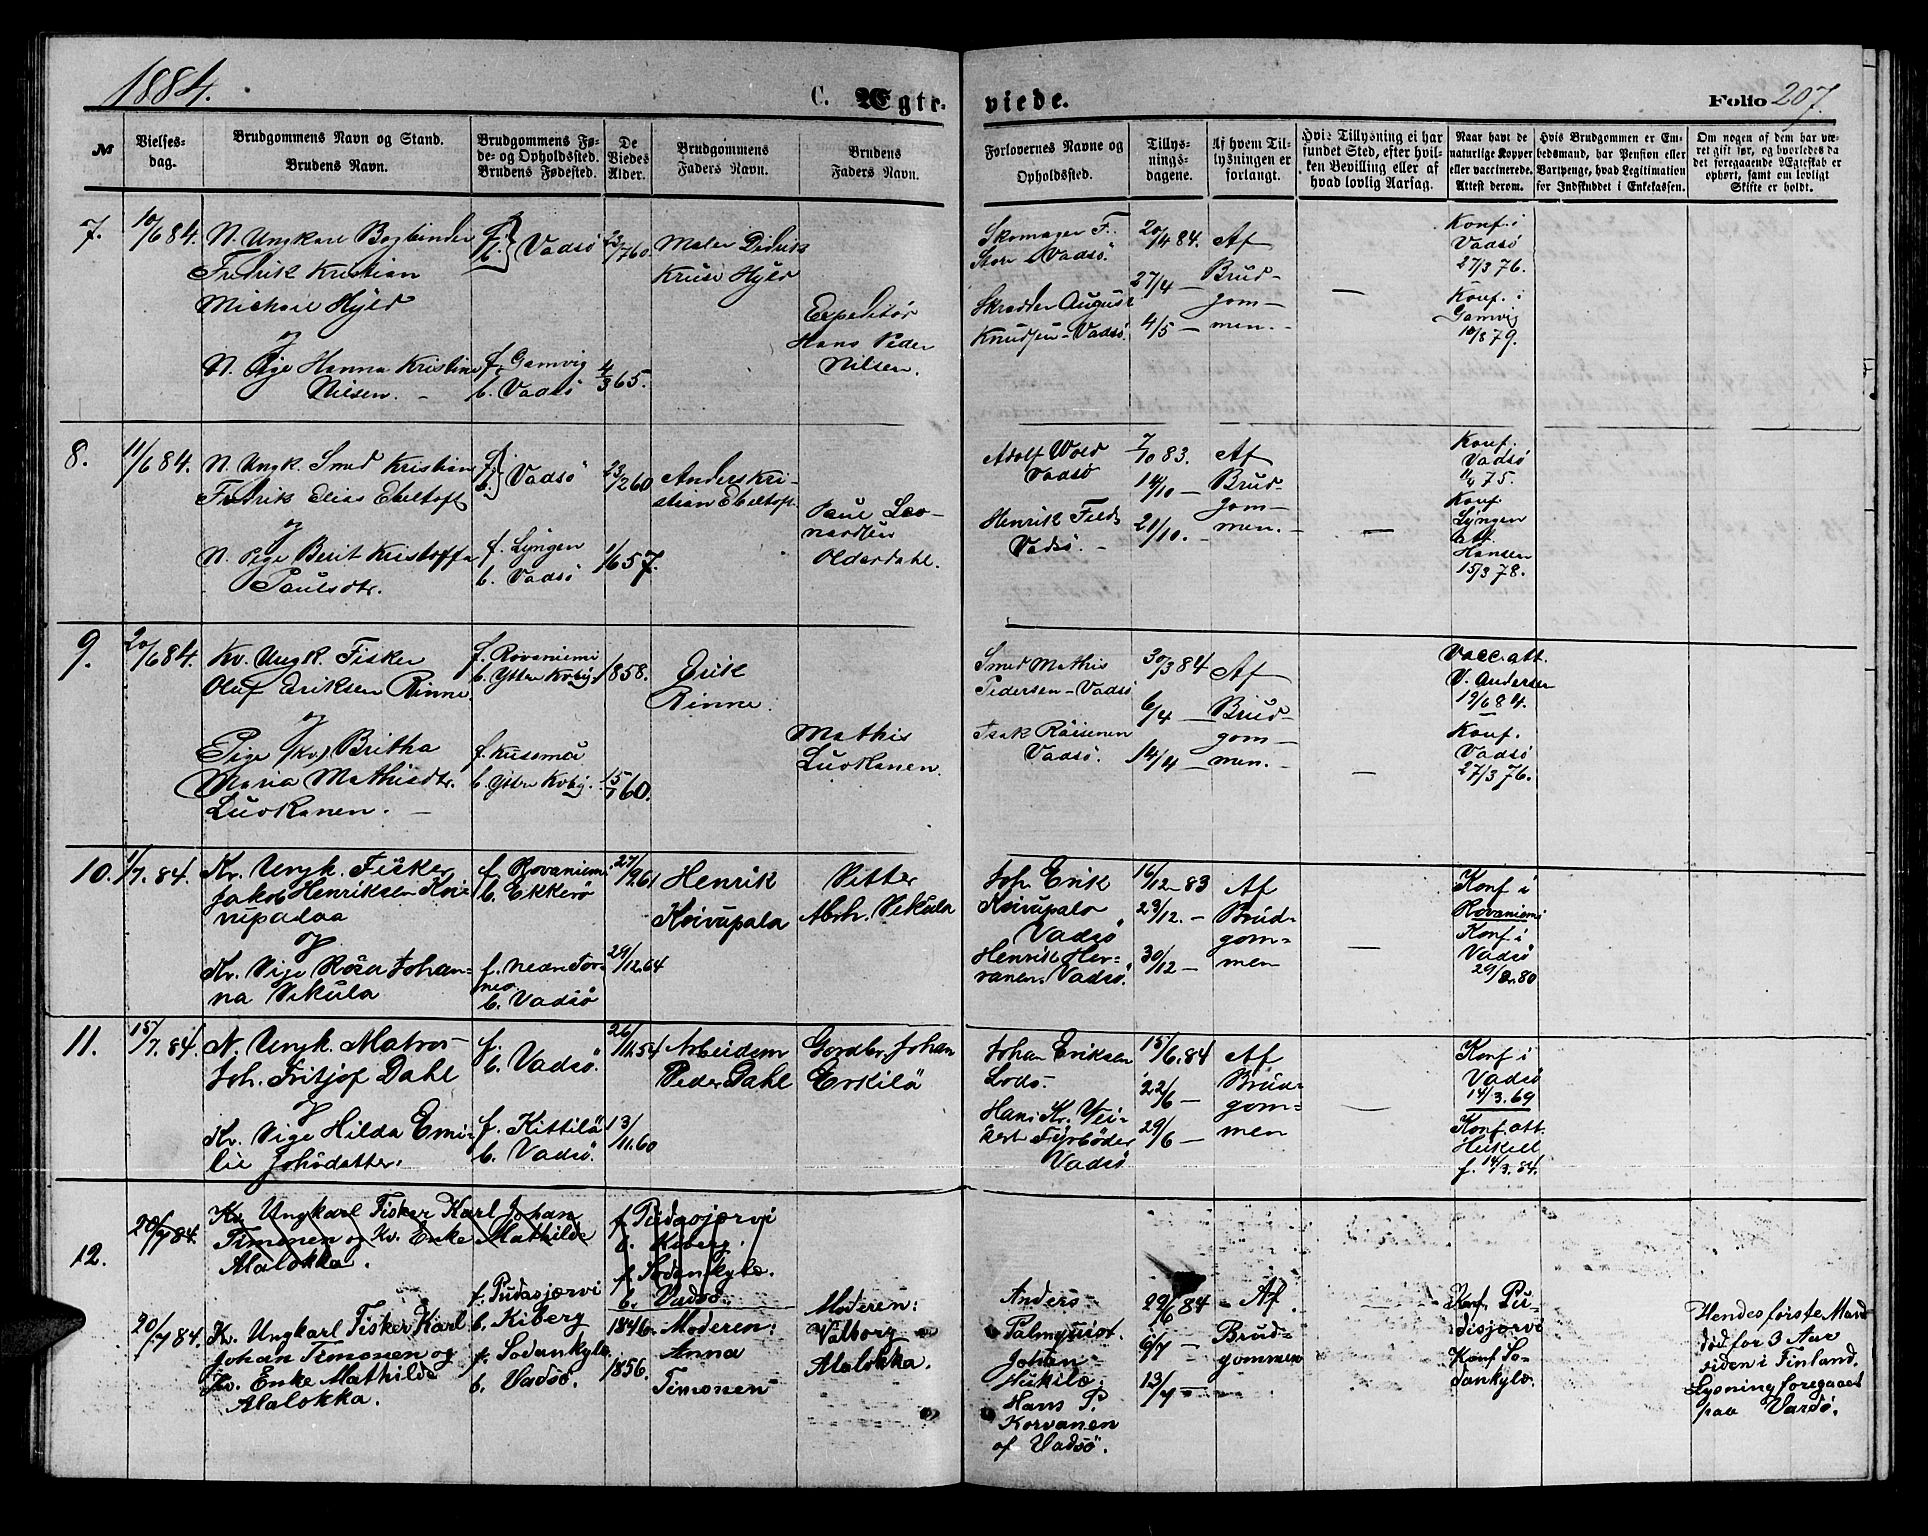 1884.
C. Ægte-
viede.
Folio 207.
№
Vielses-
dag.
Brudgommens Navn og Stand.
Brudens Navn.
Brudgommens Fø-
de- og Opholdssted.
Brudens Fødested.
De
Viedes
Alder.
Brudgommens
Faders Navn.
Brudens
Faders Navn.
Forlovernes Navne og
Opholdssted.
Tillys-
nings-
dagene.
Af hvem Til-
lysningen er
forlangt.
Hvis Tillysning ei har
fundet Sted, efter hvil-
ken Bevilling eller af
hvad lovlig Aarsag.
Naar havt de
naturlige Kopper
eller vaccinerede.
Attest derom.
Hvis Brudgommen er Em-
bedsmand, har Pension eller
Vartpenge, hvad Legitimation
for Indskuddet i Enkekassen.
Om nogen af dem har væ-
ret gift før, og hvorledes da
det foregaaende Ægteskab er
ophørt, samt om lovligt
Skifte er holdt.
7.
10/6 84.
N. Ungkarl Bogbinder
Fredrik Kristian
Michael Hyld
og
N. Pige Hanna Kristine
Nilsen. -
f. b. } Vadsö
f. Gamvig
b. Vadsö
23/7 60.
4/3 65.
Maler Didrik
Kruse Hyld
Expeditör
Hans Peder
Nilsen.
Skomager F.
Store Vadsö.
Skrædder August
Knudsen - Vadsö.
20/4 84.
27/4 -
4/5 -
Af
Brud-
gom-
men. -
-
Konf. i
Vadsö
27/3 76.
Konf. i
Gamvig
10/8 79.
8.
11/6 84.
N. Ungk. Smed Kristian
Fredrik Elias Ebeltoft
og
N. Pige Berit Kristoffa
Paulsdtr.
f. b. } Vadsö
f. Lyngen
b. Vadsö
23/2 60
1/6 57.
Anders Kri-
stian Ebeltoft
Paul Leo-
nardsen
Olderdahl.
Adolf Wold
Vadsö
Henrik Feldt
Vadsö. -
7/10 83.
14/10 -
21/10. -
Af
Brud-
gom-
men. -
-
Konf.
Vadsö
11/4 75.
Konf.
Lyngen
att.
Hansen
15/3 78.
9.
20/6 84.
Kv. Ungk. Fisker
Oluf Eriksen Rinne
og
Pige (Kv.) Britha
Maria Mathisdtr.
Luokanen. -
f. Rovaniemi
b. Ytre Kvby.
f. Kusomoa
b. Ytre Kvby.
1858.
15/1 60.
Erik
Rinne.
Mathis
Luokanen.
Smed Mathis
Pedersen - Vadsö
Isak Räisenen
Vadsö.
30/3 84
6/4 -
14/4 -
Af
Brud-
gom-
men. -
-
Vacc. att.
V. Andersen
19/6 84.
Konf.
Vadsö
27/3 76.
10.
1/7. 84.
Kv. Ungk. Fisker
Jakob Henriksen Koi-
vupalaa
og
Kv. Pige Rosa Johan-
na Vikula
f. Rovaniemi
b. Ekkerö
f. Nedn Tor-
neo
b. Vadsö
27/9. 61
29/12. 64
Henrik
Koivupala
Sitter
Abrh. Vikula
Joh. Erik
Koivupalo
Vadsö
Henrik Her-
vanen. Vadsö.
16/12 - 83
23/12. -
30/12 -
Af
Brud-
gom-
men
-
Konf i
Rovaniemi
Konf i
Vadsö
29/8. 80
11.
15/7. 84.
N. Ungk. Matros -
Joh. Fritjof Dahl
og
Kv. Pige Hilda Emi-
lie Johsdatter.
f.
b. Vadsö.
f. Kittilä
b. Vadsö.
26/11. 54
13/11. 60
Arbeidsm
Peder Dahl
Gordbr. Johan
Erkilä
Johan Eriksen
Lods.
Hans Kr. Wei-
kert Fyrböder
Vadsö
15/6. 84
22/6 -
29/6 -
Af
Brud-
gom-
men
-
Konf i
Vadsö
14/3. 69
Konf. att.
Heikell
f. 14/3. 84.
12.
20/7 84.
Kv. Ungkarl Fisker Karl Johan
Timonen og Kv. Enke Mathilde
Alalokka.
f. Pudasjærvi
b. Kiberg.
f. Sodankylæ.
b. Vadsö.
20/7 84.
Kv. Ungkarl Fisker Karl
Johan Timonen og
Kv. Enke Mathilde
Alalokka.
f. Pudasjærvi
b. Kiberg
f. Sodankylæ
b. Vadsö.
1846.
1856.
Moderen:
Anna
Timonen
Moderen:
Valborg
Alalokka.
Anders
Palmquist.
Johan
Heikilæ.
Hans P.
Korvanen
af Vadsö.
29/6 84
6/7 -
13/7 -
- Af
Brud-
gommen
Konf. Pu-
disjærvi
Konf. So-
dankylæ.
Hendes förste Mand
död for 3 Aar
siden i Finland.
Lysning foregaaet
paa Vardö.